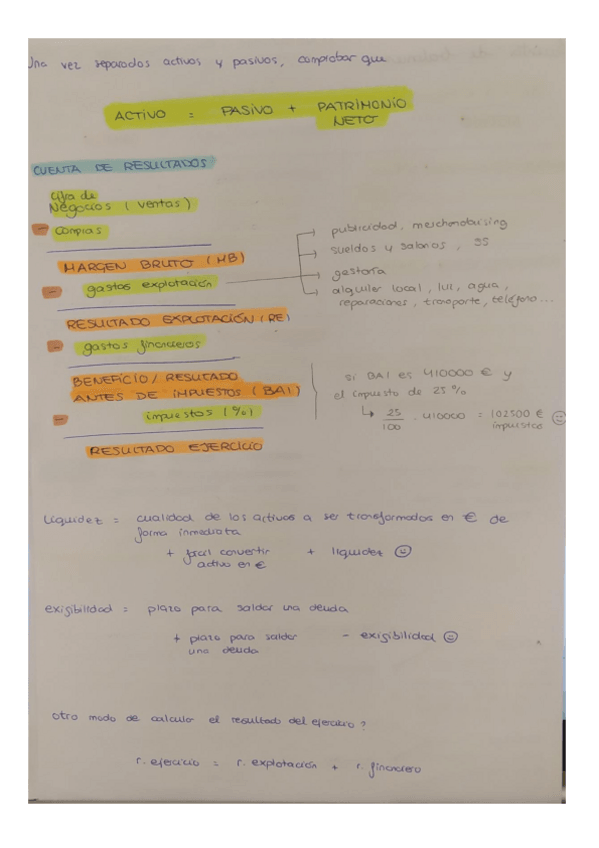 Una vez separados activos y pasivos, comprobar que
ACTIVO = PASIVO + PATRIMONIO
NETO
CUENTA DE RESULTADOS
Cifra de
Negocios (ventas)
- compras
MARGEN BRUTO (MB)
- gastos explotación
publicidad, merchandaising
sueldos y salarios, SS
gestoría
alquiler local, luz, agua,
reparaciones, transporte, teléfono...
RESULTADO EXPLOTACIÓN (RE)
- gastos financieros
BENEFICIO / RESULTADO
ANTES DE IMPUESTOS (BAI)
- impuestos (%)
RESULTADO EJERCICIO
si BAI es 410000 € y
el impuesto de 25%
↳ 25/100 · 410000 = 102500 €
impuestos
Liquidez = cualidad de los activos a ser transformados en € de
forma inmediata
+ facil convertir + liquidez
activo en €
exigibilidad = plazo para saldar una deuda
+ plazo para saldar - exigibilidad
una deuda
otro modo de calcular el resultado del ejercicio?
r. ejercicio = r. explotación + r. financiero